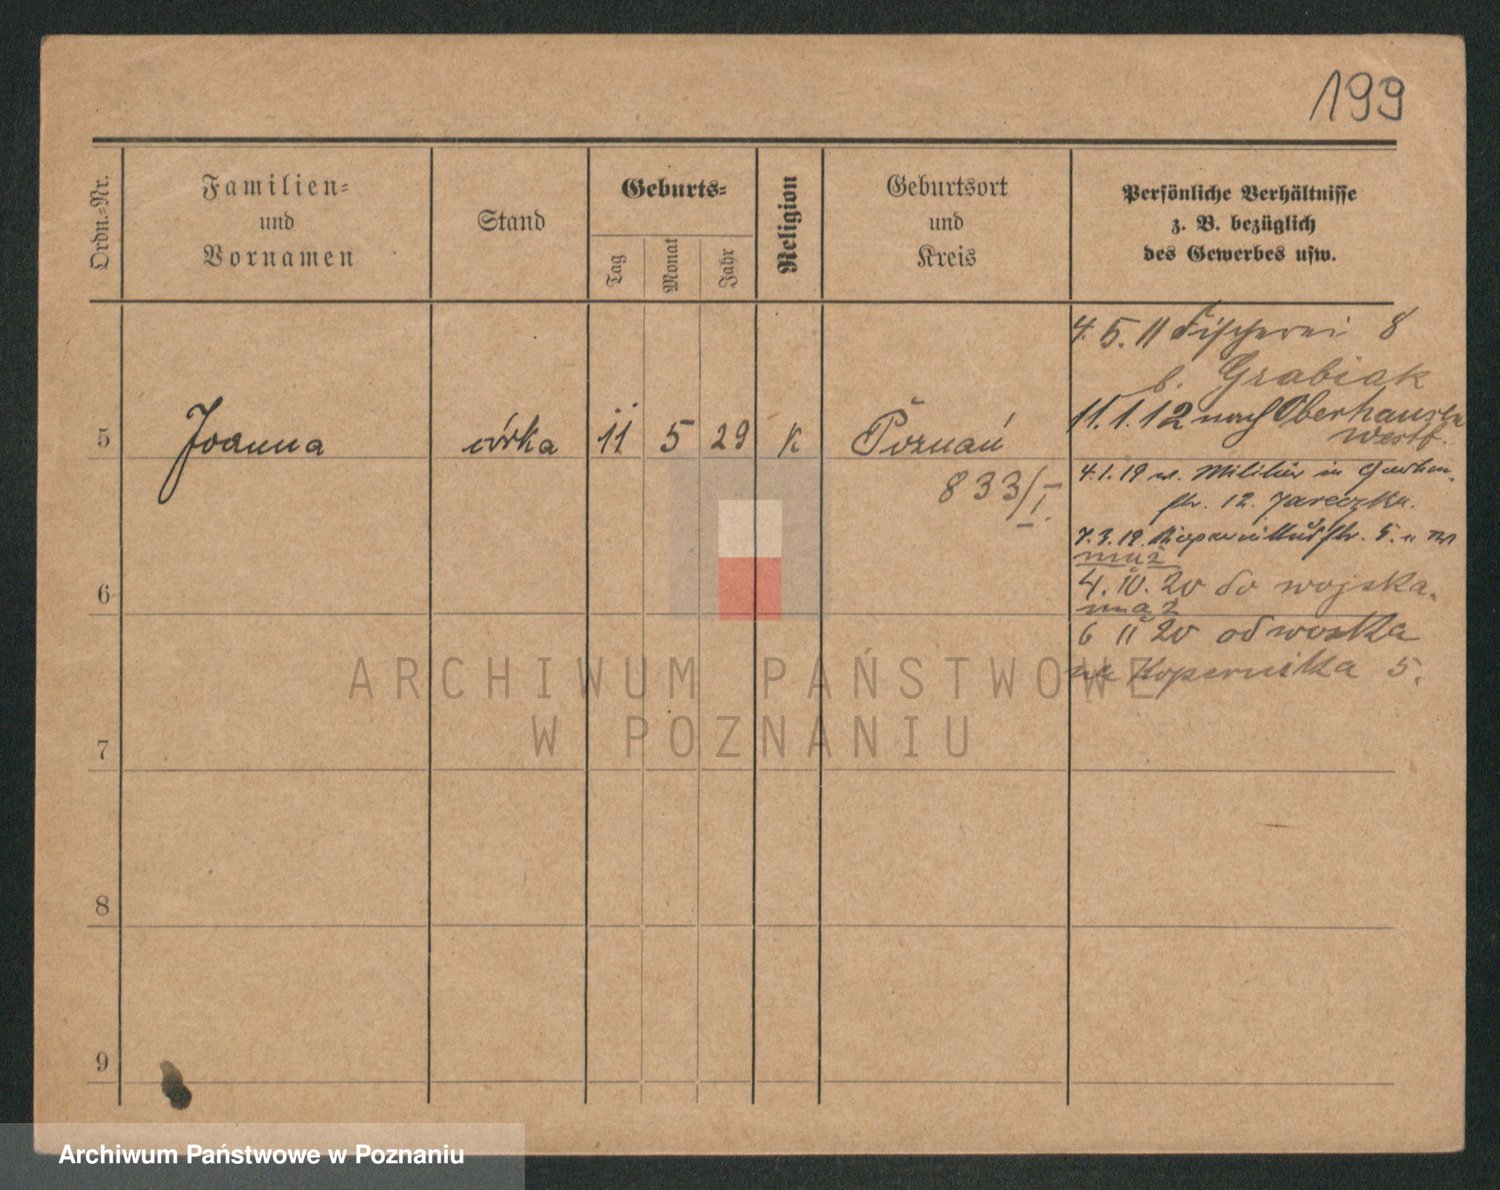 199
Ordn.=Nr.
Familien=
und
Vornamen
Stand
Geburts=
Tag
Monat
Jahr
Religion
Geburtsort
und
Kreis
Persönliche Verhältnisse
z. B. bezüglich
des Gewerbes usw.
4. 5. 11 Fischerei 8
b. Grabiak
11. 1. 12 nach Oberhausen
Westf.
5 Joanna córka 11 5 29 K Poznań
833/I.
4. 1. 19 v. Militär in
str. 12. Jareczka.
7. 3. 19. Kopernikusstr. 5.
mąż
4. IV. 20 do wojska.
mąż
6 II 20 od woska
na Kopernika 5.
6
7
8
9
ARCHIWUM PAŃSTWOWE
W POZNANIU
Archiwum Państwowe w Poznaniu